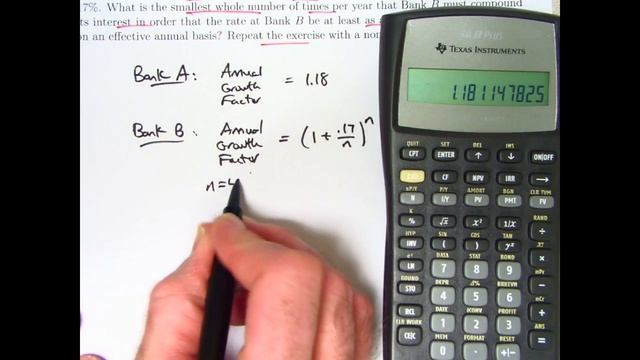 7%. What is the smallest whole number of times per year that Bank B must compound
its interest in order that the rate at Bank B be at least as
on an effective annual basis? Repeat the exercise with a nom
Bank A: Annual Growth Factor = 1.18
Bank B: Annual Growth Factor = (1 + .17/n)^n
n=4
BA II Plus
TEXAS INSTRUMENTS
1.181147825
QUIT SET DEL INS
CPT ENTER ↑ ↓ ON/OFF
2ND CF NPV IRR →
xP/Y P/Y AMORT BGN CLR TVM
N I/Y PV PMT FV
K RAND
% √x x² 1/x ÷
HYP SIN COS TAN
INV ( ) yˣ ×
eˣ DATA STAT BOND nPr
LN 7 8 9 −
ROUND DEPR Δ% BREVEN nCr
STO 4 5 6 +
DATE ICONV PROFIT ANS
RCL 1 2 3 =
CLR WORK MEM FORMAT RESET
CE|C 0 . +|−